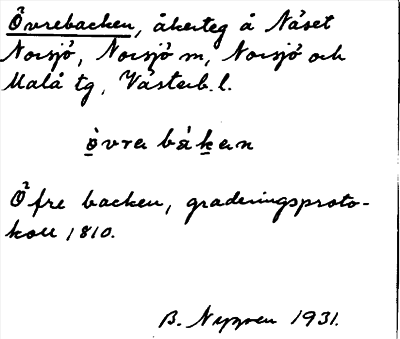 Övrebacken, åkerteg å Näset
Norsjö, Norsjö m, Norsjö och
Malå tg, Västerb. l.
òvra bàkan
Öfre backen, graderingsproto-
koll 1810.
B. 1931.